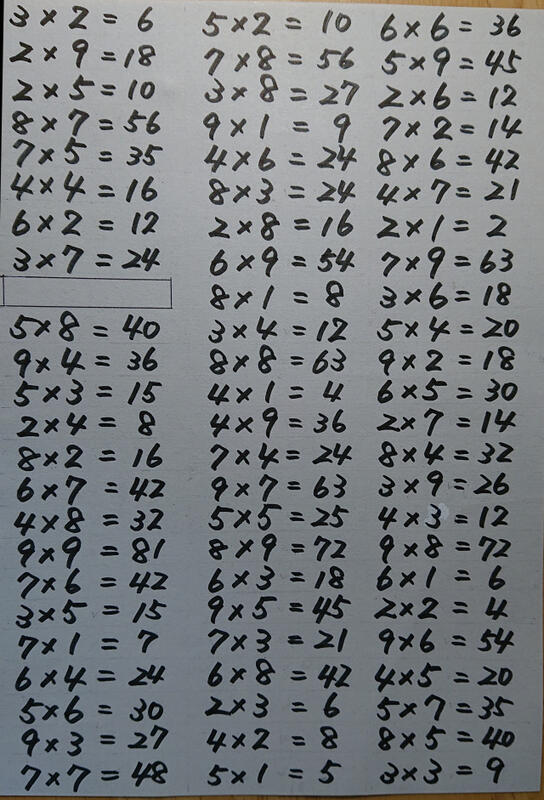 3 × 2 = 6
2 × 9 = 18
2 × 5 = 10
8 × 7 = 56
7 × 5 = 35
4 × 4 = 16
6 × 2 = 12
3 × 7 = 24
5 × 8 = 40
9 × 4 = 36
5 × 3 = 15
2 × 4 = 8
8 × 2 = 16
6 × 7 = 42
4 × 8 = 32
9 × 9 = 81
7 × 6 = 42
3 × 5 = 15
7 × 1 = 7
6 × 4 = 24
5 × 6 = 30
9 × 3 = 27
7 × 7 = 48
5 × 2 = 10
7 × 8 = 56
3 × 8 = 27
9 × 1 = 9
4 × 6 = 24
8 × 3 = 24
2 × 8 = 16
6 × 9 = 54
8 × 1 = 8
3 × 4 = 12
8 × 8 = 63
4 × 1 = 4
4 × 9 = 36
7 × 4 = 24
9 × 7 = 63
5 × 5 = 25
8 × 9 = 72
6 × 3 = 18
9 × 5 = 45
7 × 3 = 21
6 × 8 = 42
2 × 3 = 6
4 × 2 = 8
5 × 1 = 5
6 × 6 = 36
5 × 9 = 45
2 × 6 = 12
7 × 2 = 14
8 × 6 = 42
4 × 7 = 21
2 × 1 = 2
7 × 9 = 63
3 × 6 = 18
5 × 4 = 20
9 × 2 = 18
6 × 5 = 30
2 × 7 = 14
8 × 4 = 32
3 × 9 = 26
4 × 3 = 12
9 × 8 = 72
6 × 1 = 6
2 × 2 = 4
9 × 6 = 54
4 × 5 = 20
5 × 7 = 35
8 × 5 = 40
3 × 3 = 9